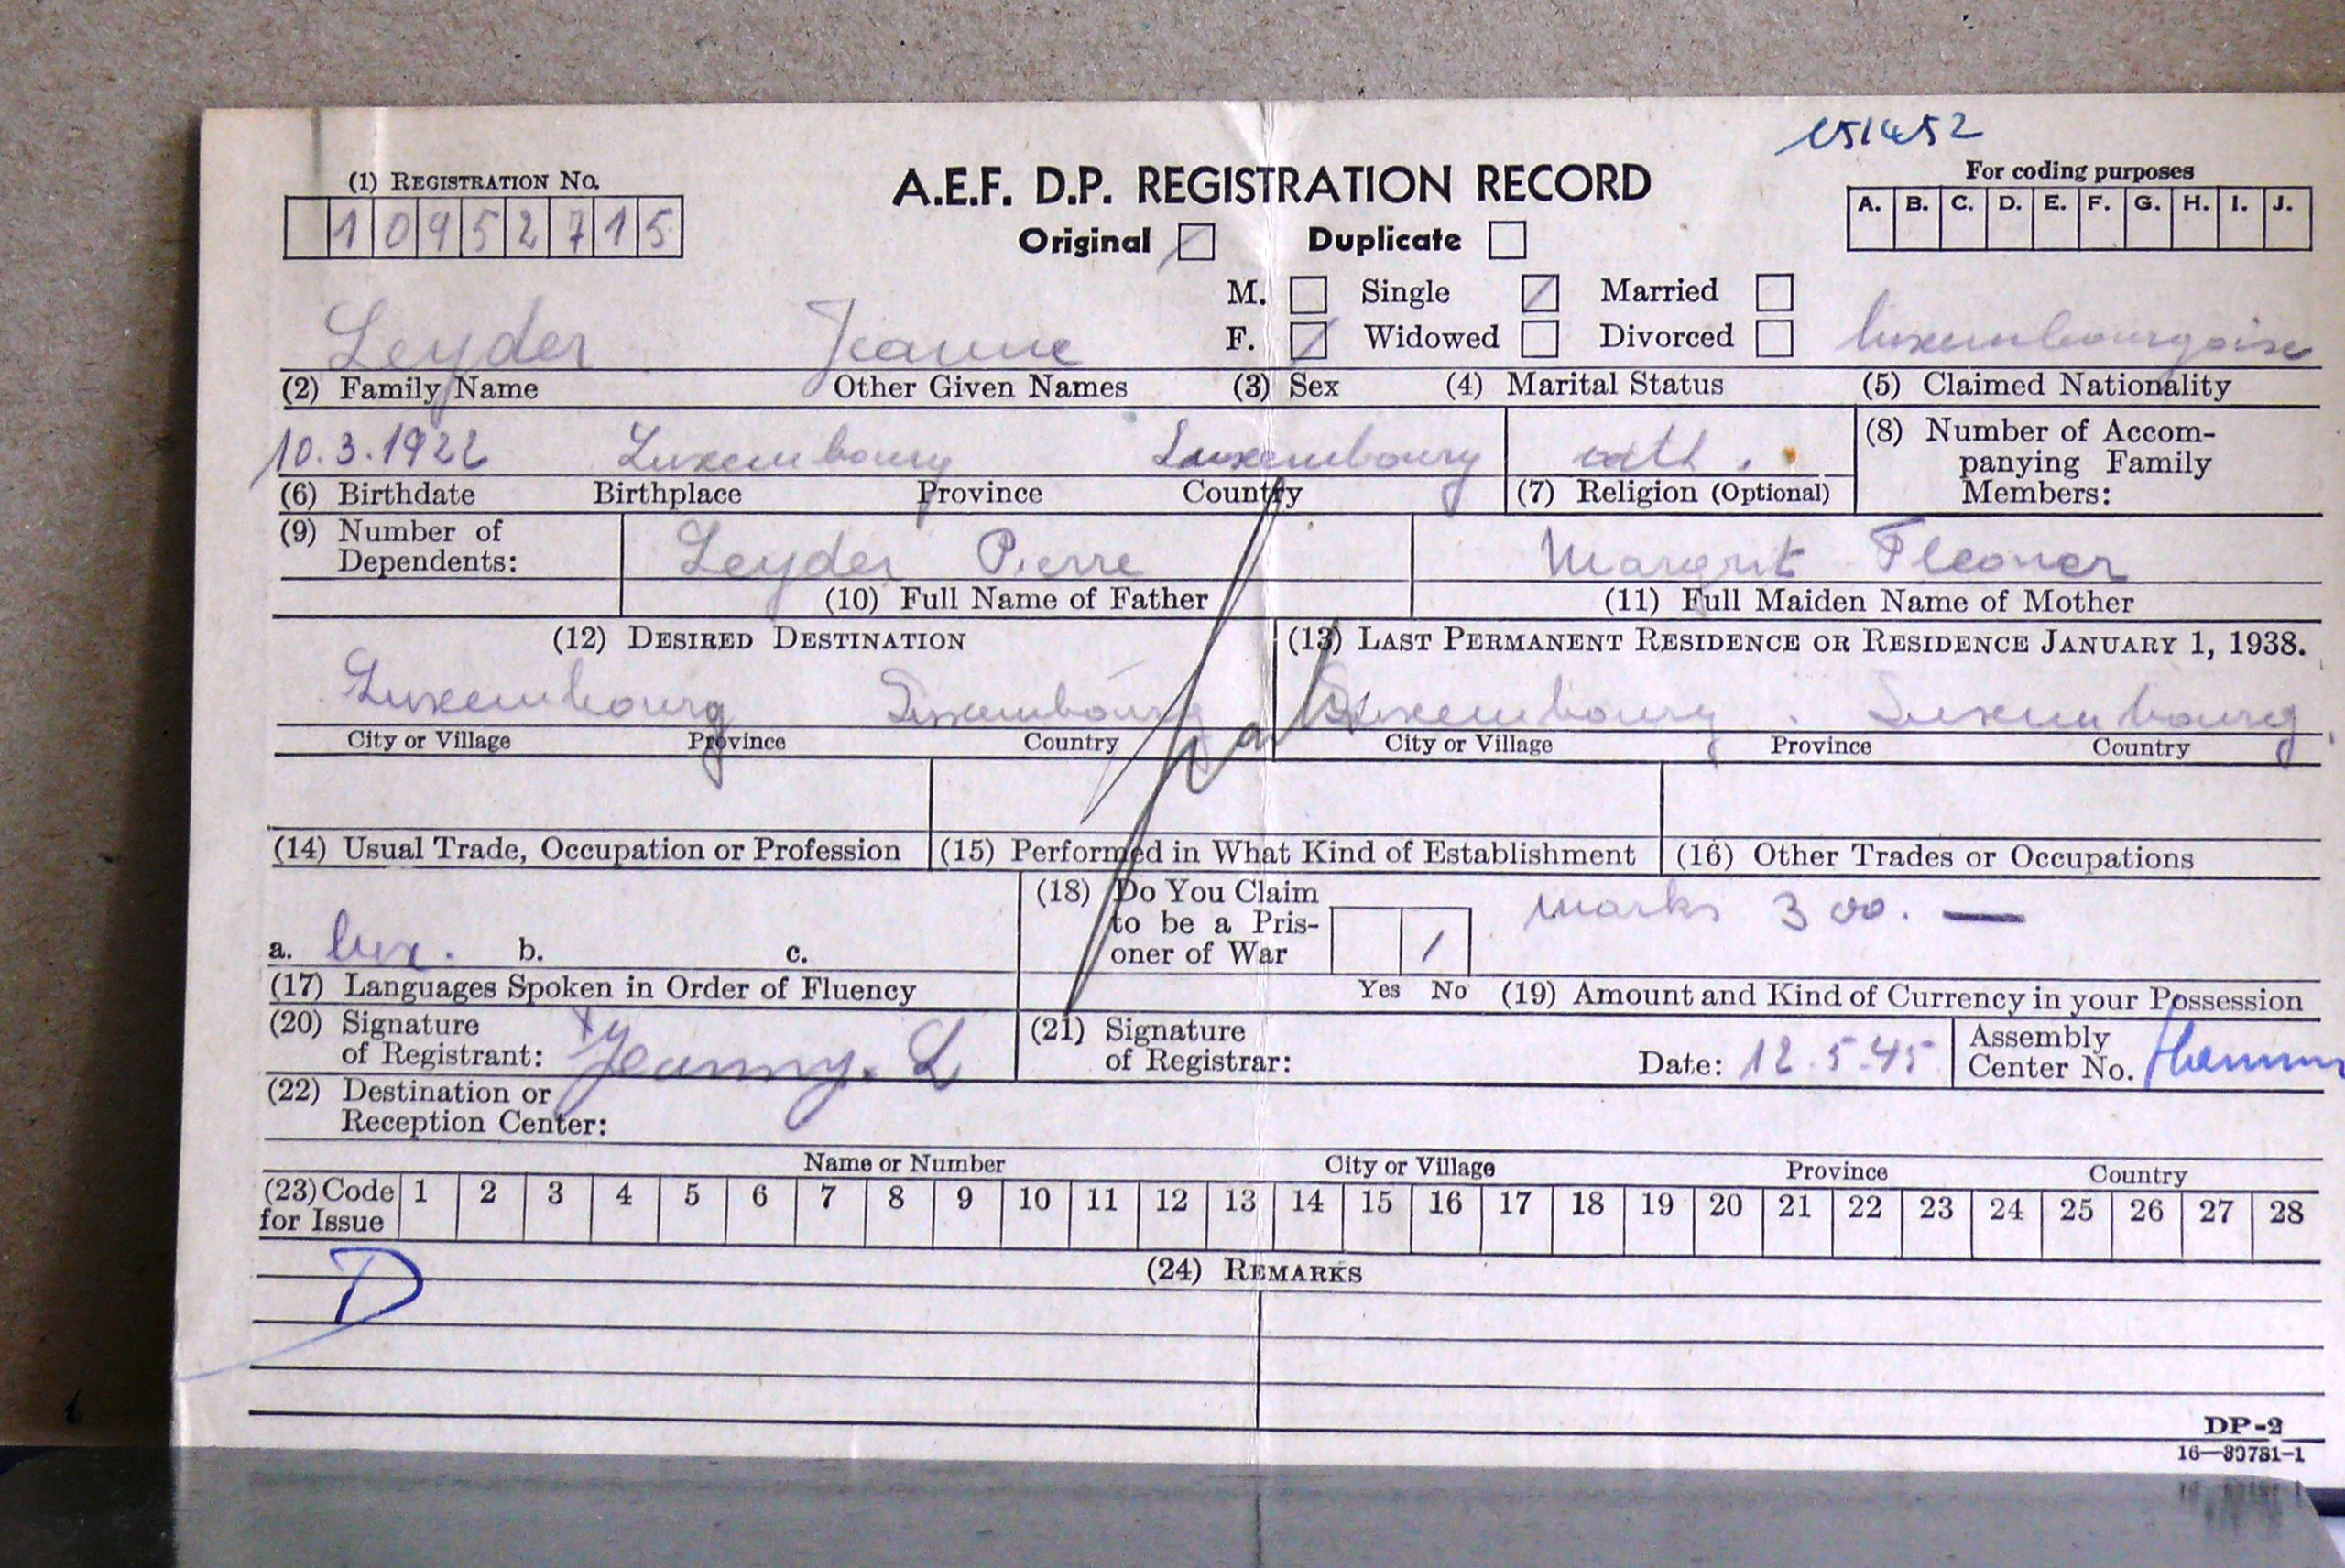 151452
(1) REGISTRATION No.
1 0 9 5 2 7 1 5
A.E.F. D.P. REGISTRATION RECORD
Original Duplicate
For coding purposes
A. B. C. D. E. F. G. H. I. J.
M. Single Married
Leyder Jeanne F. Widowed Divorced luxembourgoise
(2) Family Name Other Given Names (3) Sex (4) Marital Status (5) Claimed Nationality
10.3.1922 Luxembourg Luxembourg cath.
(6) Birthdate Birthplace Province Country (7) Religion (Optional)
(8) Number of Accom-
panying Family
Members:
(9) Number of
Dependents:
Leyder Pierre
(10) Full Name of Father
Margrit
(11) Full Maiden Name of Mother
(12) DESIRED DESTINATION
(13) LAST PERMANENT RESIDENCE OR RESIDENCE JANUARY 1, 1938.
Luxembourg Luxembourg Luxembourg . Luxembourg.
City or Village Province Country City or Village Province Country
(14) Usual Trade, Occupation or Profession (15) Performed in What Kind of Establishment (16) Other Trades or Occupations
a. lux. b. c.
(17) Languages Spoken in Order of Fluency
(18) Do You Claim
to be a Pris-
oner of War
Yes No
marks 300. —
(19) Amount and Kind of Currency in your Possession
(20) Signature
of Registrant: Jeanny. L
(21) Signature
of Registrar:
Date: 12.5.45
Assembly
Center No.
(22) Destination or
Reception Center:
Name or Number City or Village Province Country
(23) Code
for Issue
1 2 3 4 5 6 7 8 9 10 11 12 13 14 15 16 17 18 19 20 21 22 23 24 25 26 27 28
D
(24) REMARKS
DP-2
16—39781-1